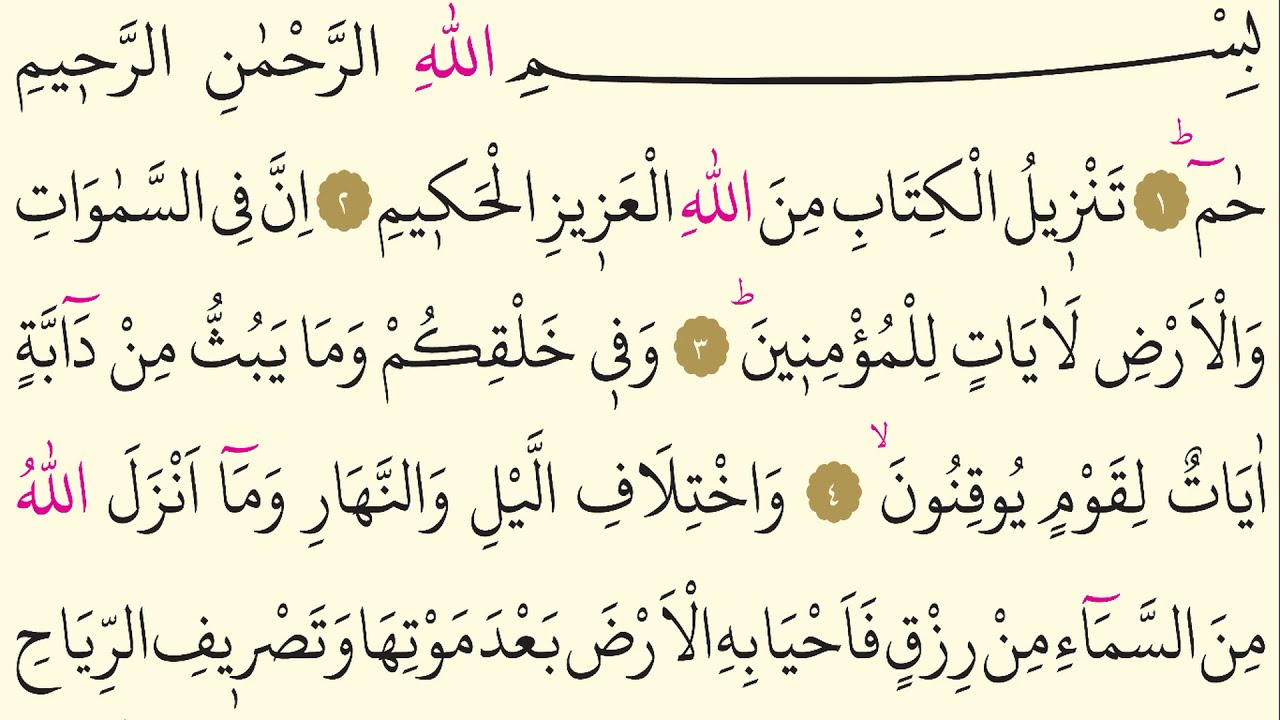 بِسْمِ اللّٰهِ الرَّحْمٰنِ الرَّحٖيمِ
حٰمٓ ؕ ١ تَنْزٖيلُ الْكِتَابِ مِنَ اللّٰهِ الْعَزٖيزِ الْحَكٖيمِ ٢ اِنَّ فِى السَّمٰوَاتِ
وَالْاَرْضِ لَاٰيَاتٍ لِلْمُؤْمِنٖينَ ؕ ٣ وَفٖى خَلْقِكُمْ وَمَا يَبُثُّ مِنْ دَٓابَّةٍ
اٰيَاتٌ لِقَوْمٍ يُوقِنُونَ ۙ ٤ وَاخْتِلَافِ الَّيْلِ وَالنَّهَارِ وَمَٓا اَنْزَلَ اللّٰهُ
مِنَ السَّمَٓاءِ مِنْ رِزْقٍ فَاَحْيَا بِهِ الْاَرْضَ بَعْدَ مَوْتِهَا وَتَصْرٖيفِ الرِّيَاحِ